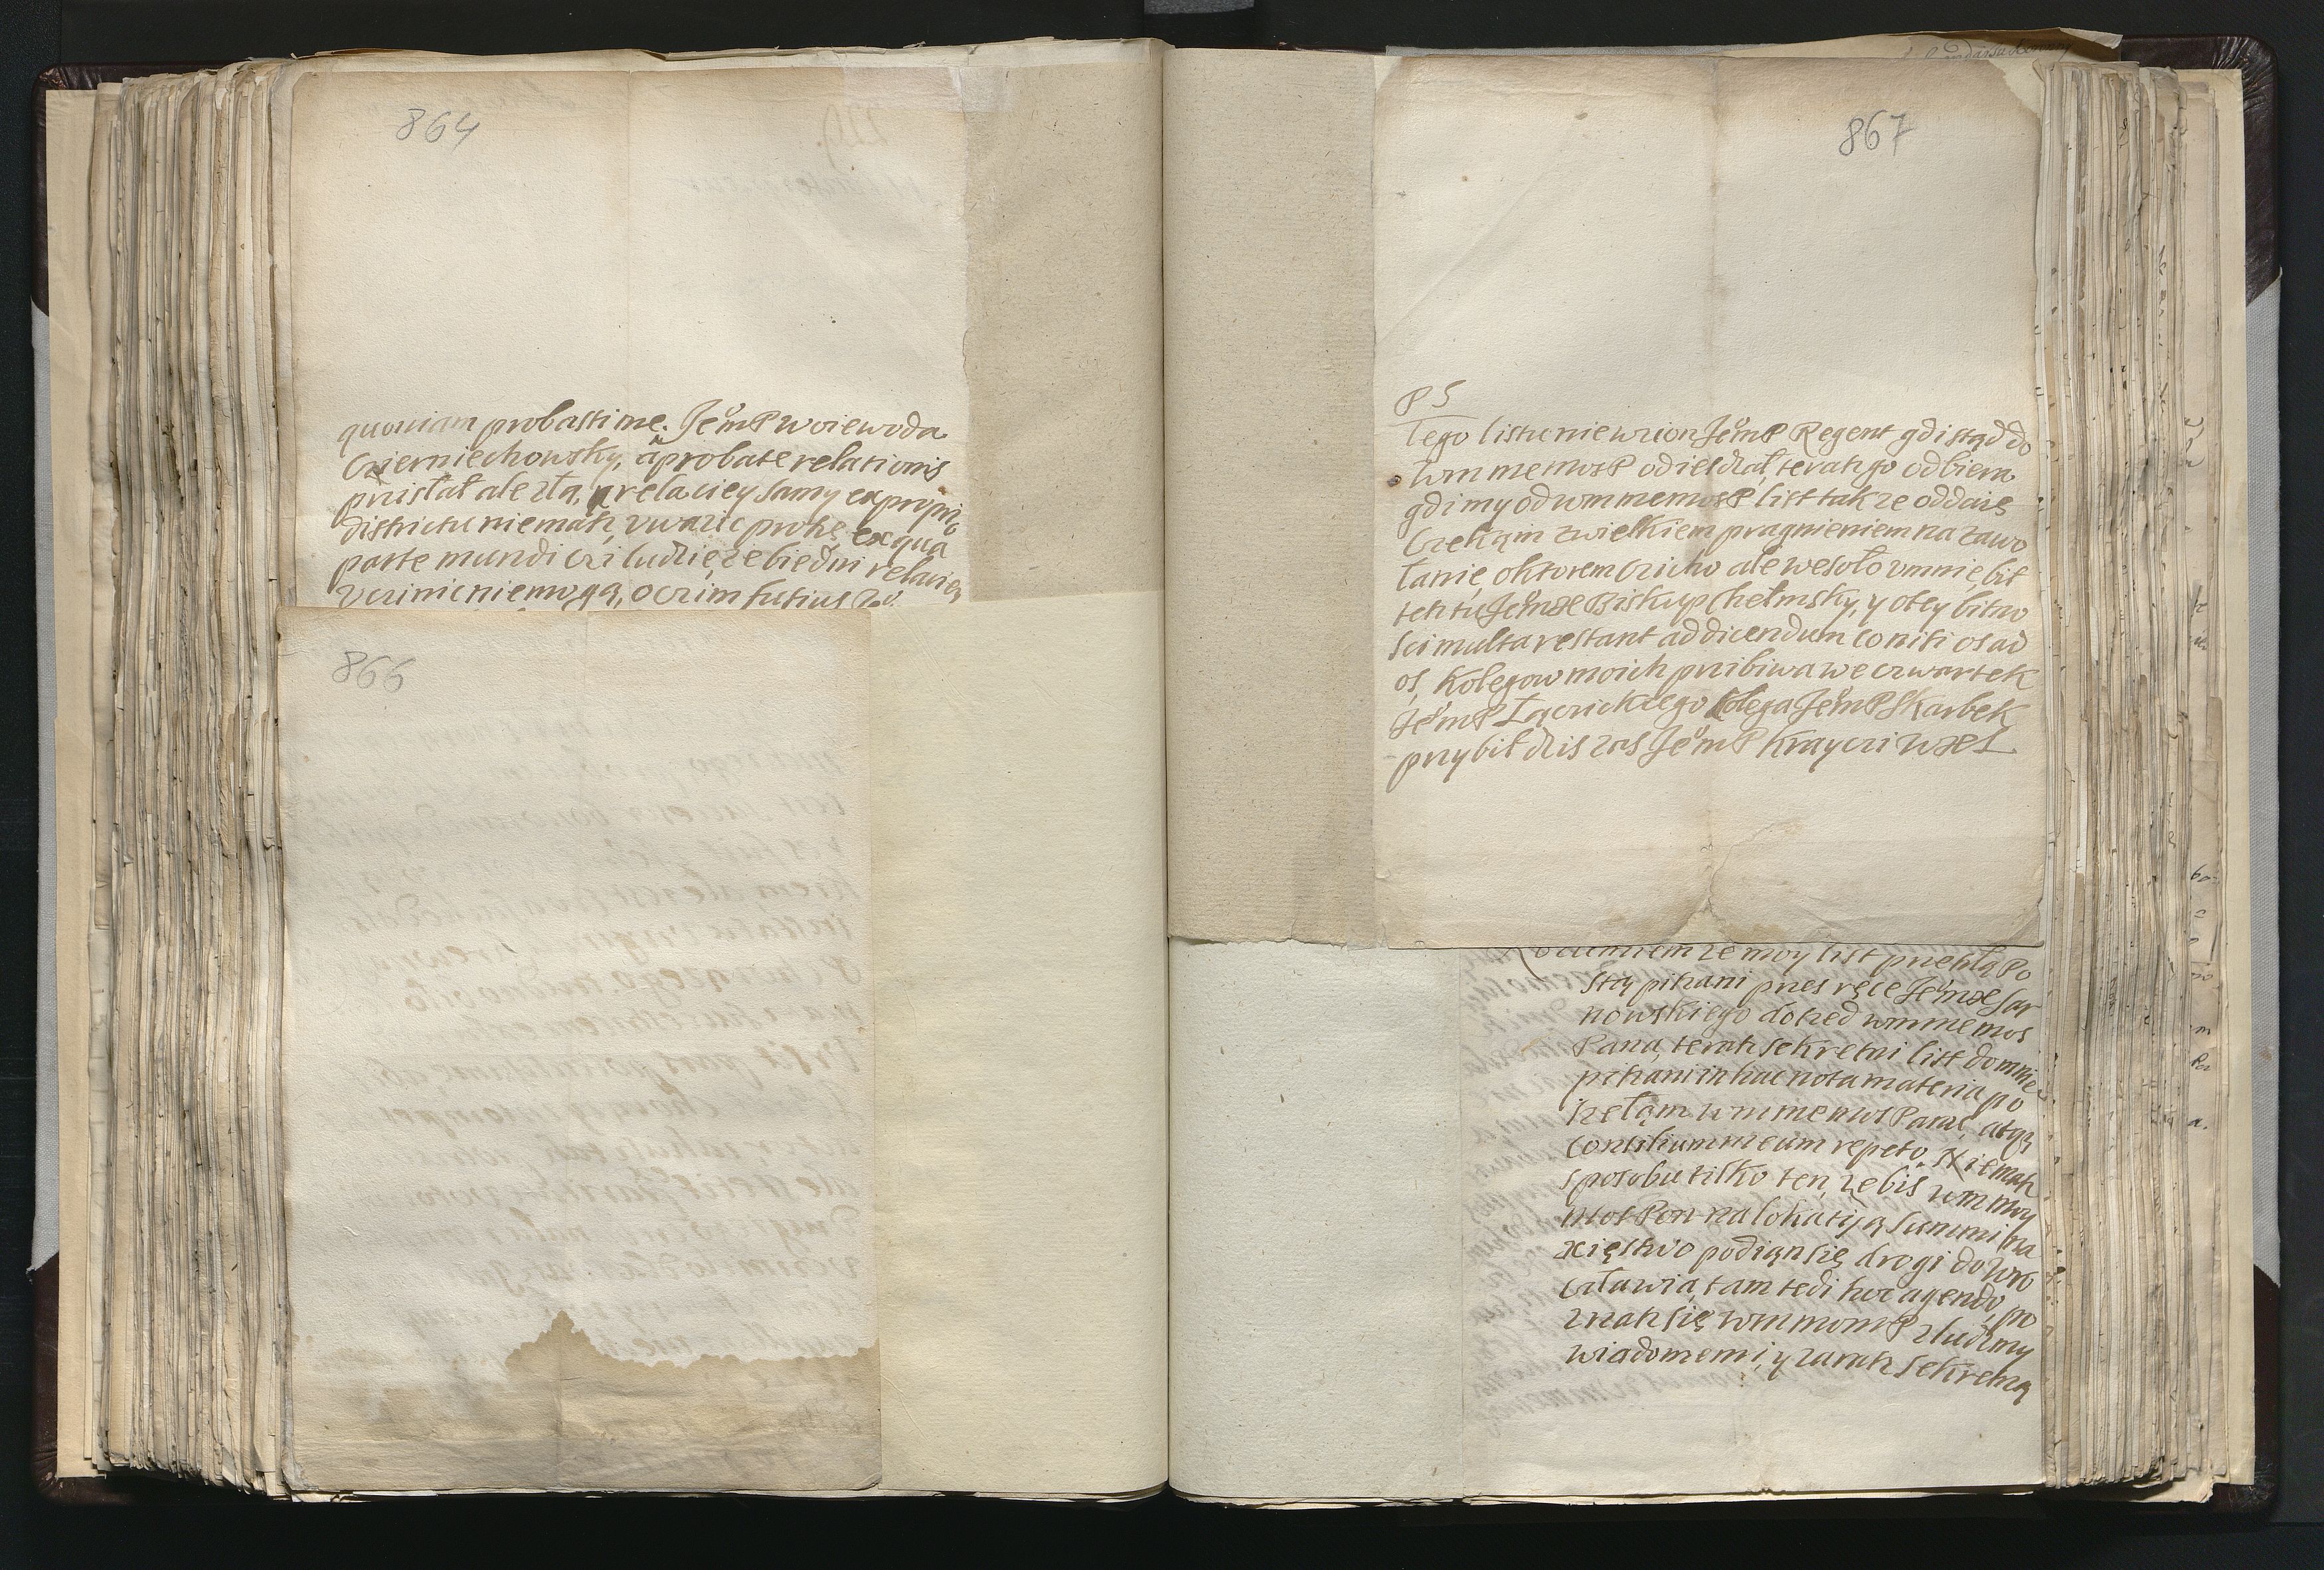 864
quoniam probasti me. Jeo͞mP Woiewoda
Czierniechowsky, a probate relationis
prisłał ale zła, a relaciey samy ex proprio
districtu niemasz, uwazic proszę, ex qua
parte mundi czi ludzie, ze biedni relaciey
uczinic niemogą, o czim fusius
866
867
PS
Tego listu nie wzion Jeo͞mP Regent gdi stąd do
Wmmemosp odiesdzał, terasz go odbiera
gdi my od wmmemosP list takze oddaie
Czekąm z wielkiem pragnieniem na zawo
łanie, oktorem czicho ale wesoło umnie, bił
tesz tu Jeo͞mæ Biskup Chełmsky, y o tey bitno
sci multa restant ad dicendum co niti os ad
os, Kolegow moich pribiwa we czwartek
Jeo͞mP Łęczickiego kolega Jeo͞mP Skarbek
przybił dzis zas Jeo͞mP Krayczi
rozumiem ze moy list przeszlą Po
sztą pisani pries ręce Jeo͞mæ Sar
nowskiego doszed wmmemos
Pana, terasz sekretni list do mnie
pisani in hac nota materia po
sełam wmmemos Panu, atqz
consilium meum repeto. Niemasz
sposobu tilko ten, zebis wmmoy
mos Pan na lokatiją summi na
xięstwo podiąn się drogi do Wro
cławia, tam tedi hoc agendo, po
znasz się wmmomP z ludzmy
wiadomemi, y zarasz sekretną